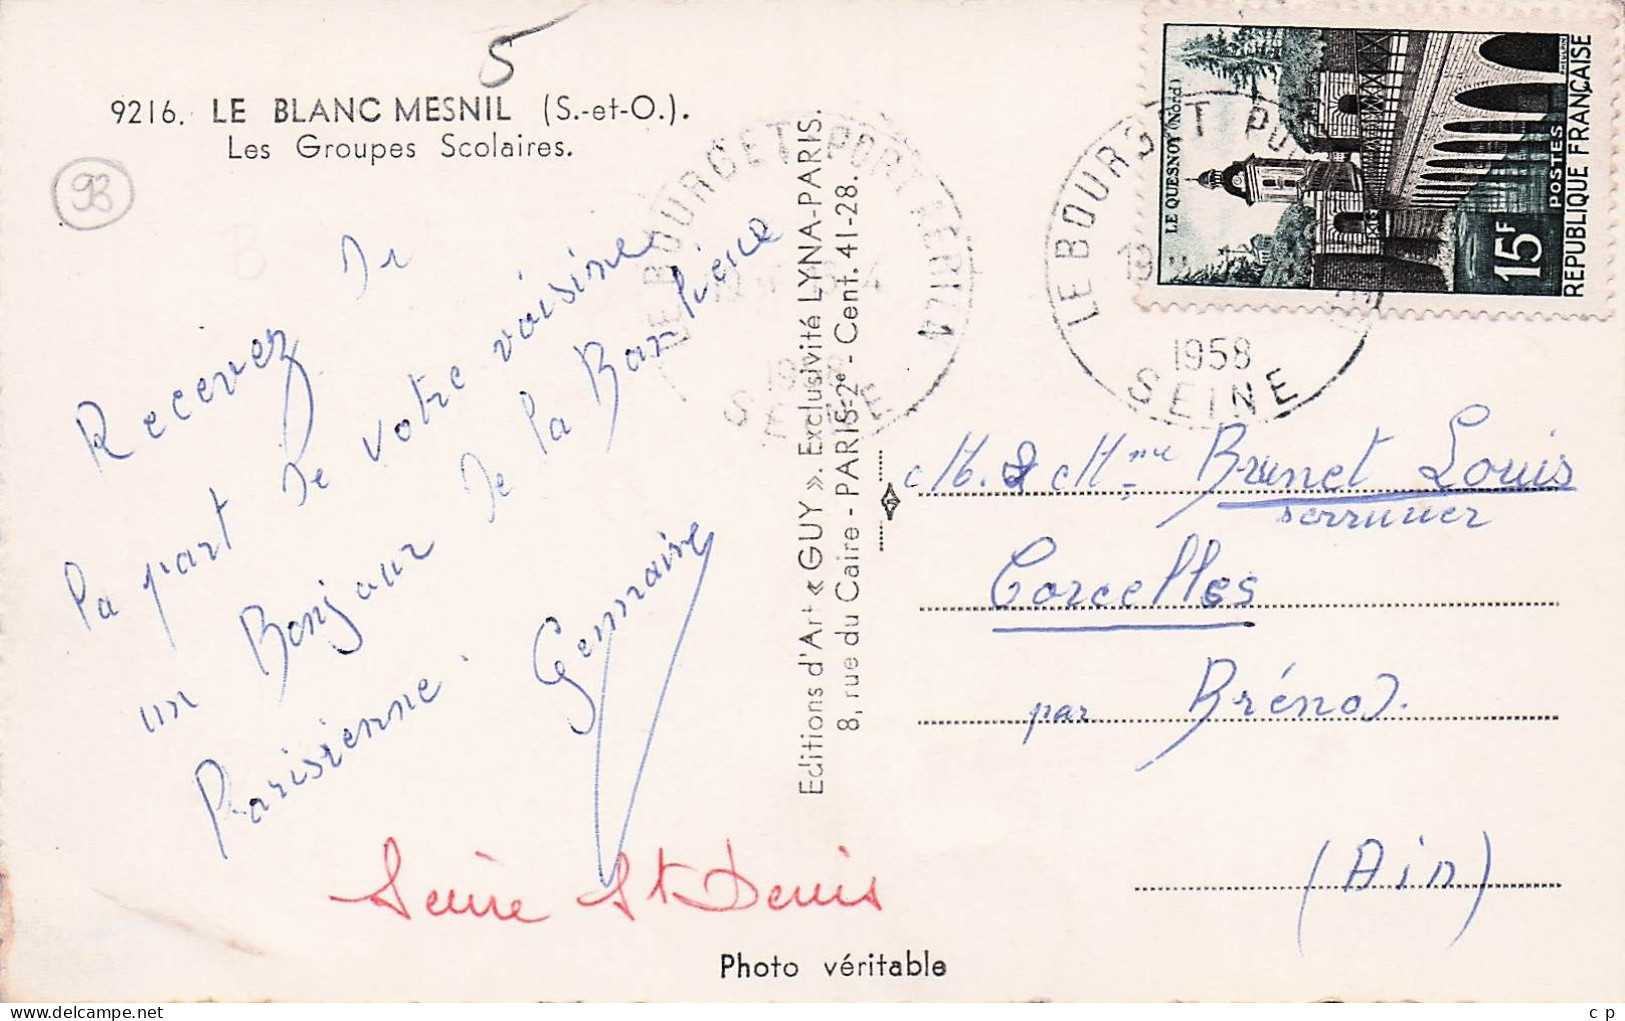 5
9216. LE BLANC MESNIL (S.-et-O.).
Les Groupes Scolaires.
93
Recevez de
la part de votre voisine
un Bonjour de la Banlieue
Parisienne.
Germaine
Seine St Denis
Photo véritable
Editions d'Art « GUY ». Exclusivité LYNA-PARIS.
8, rue du Caire - PARIS-2e - Cent. 41-28.
LE BOURGET PORT AERIEN
1958
SEINE
LE BOURGET
1958
SEINE
LE QUESNOY (Nord)
15F
POSTES
REPUBLIQUE FRANÇAISE
M. & Mme Brunet Louis
serrurier
Corcelles
par Brénod.
(Ain)
c p